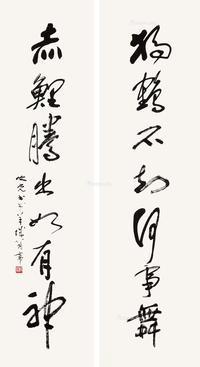 独鹤不知何事舞
赤鲤腾出如有神